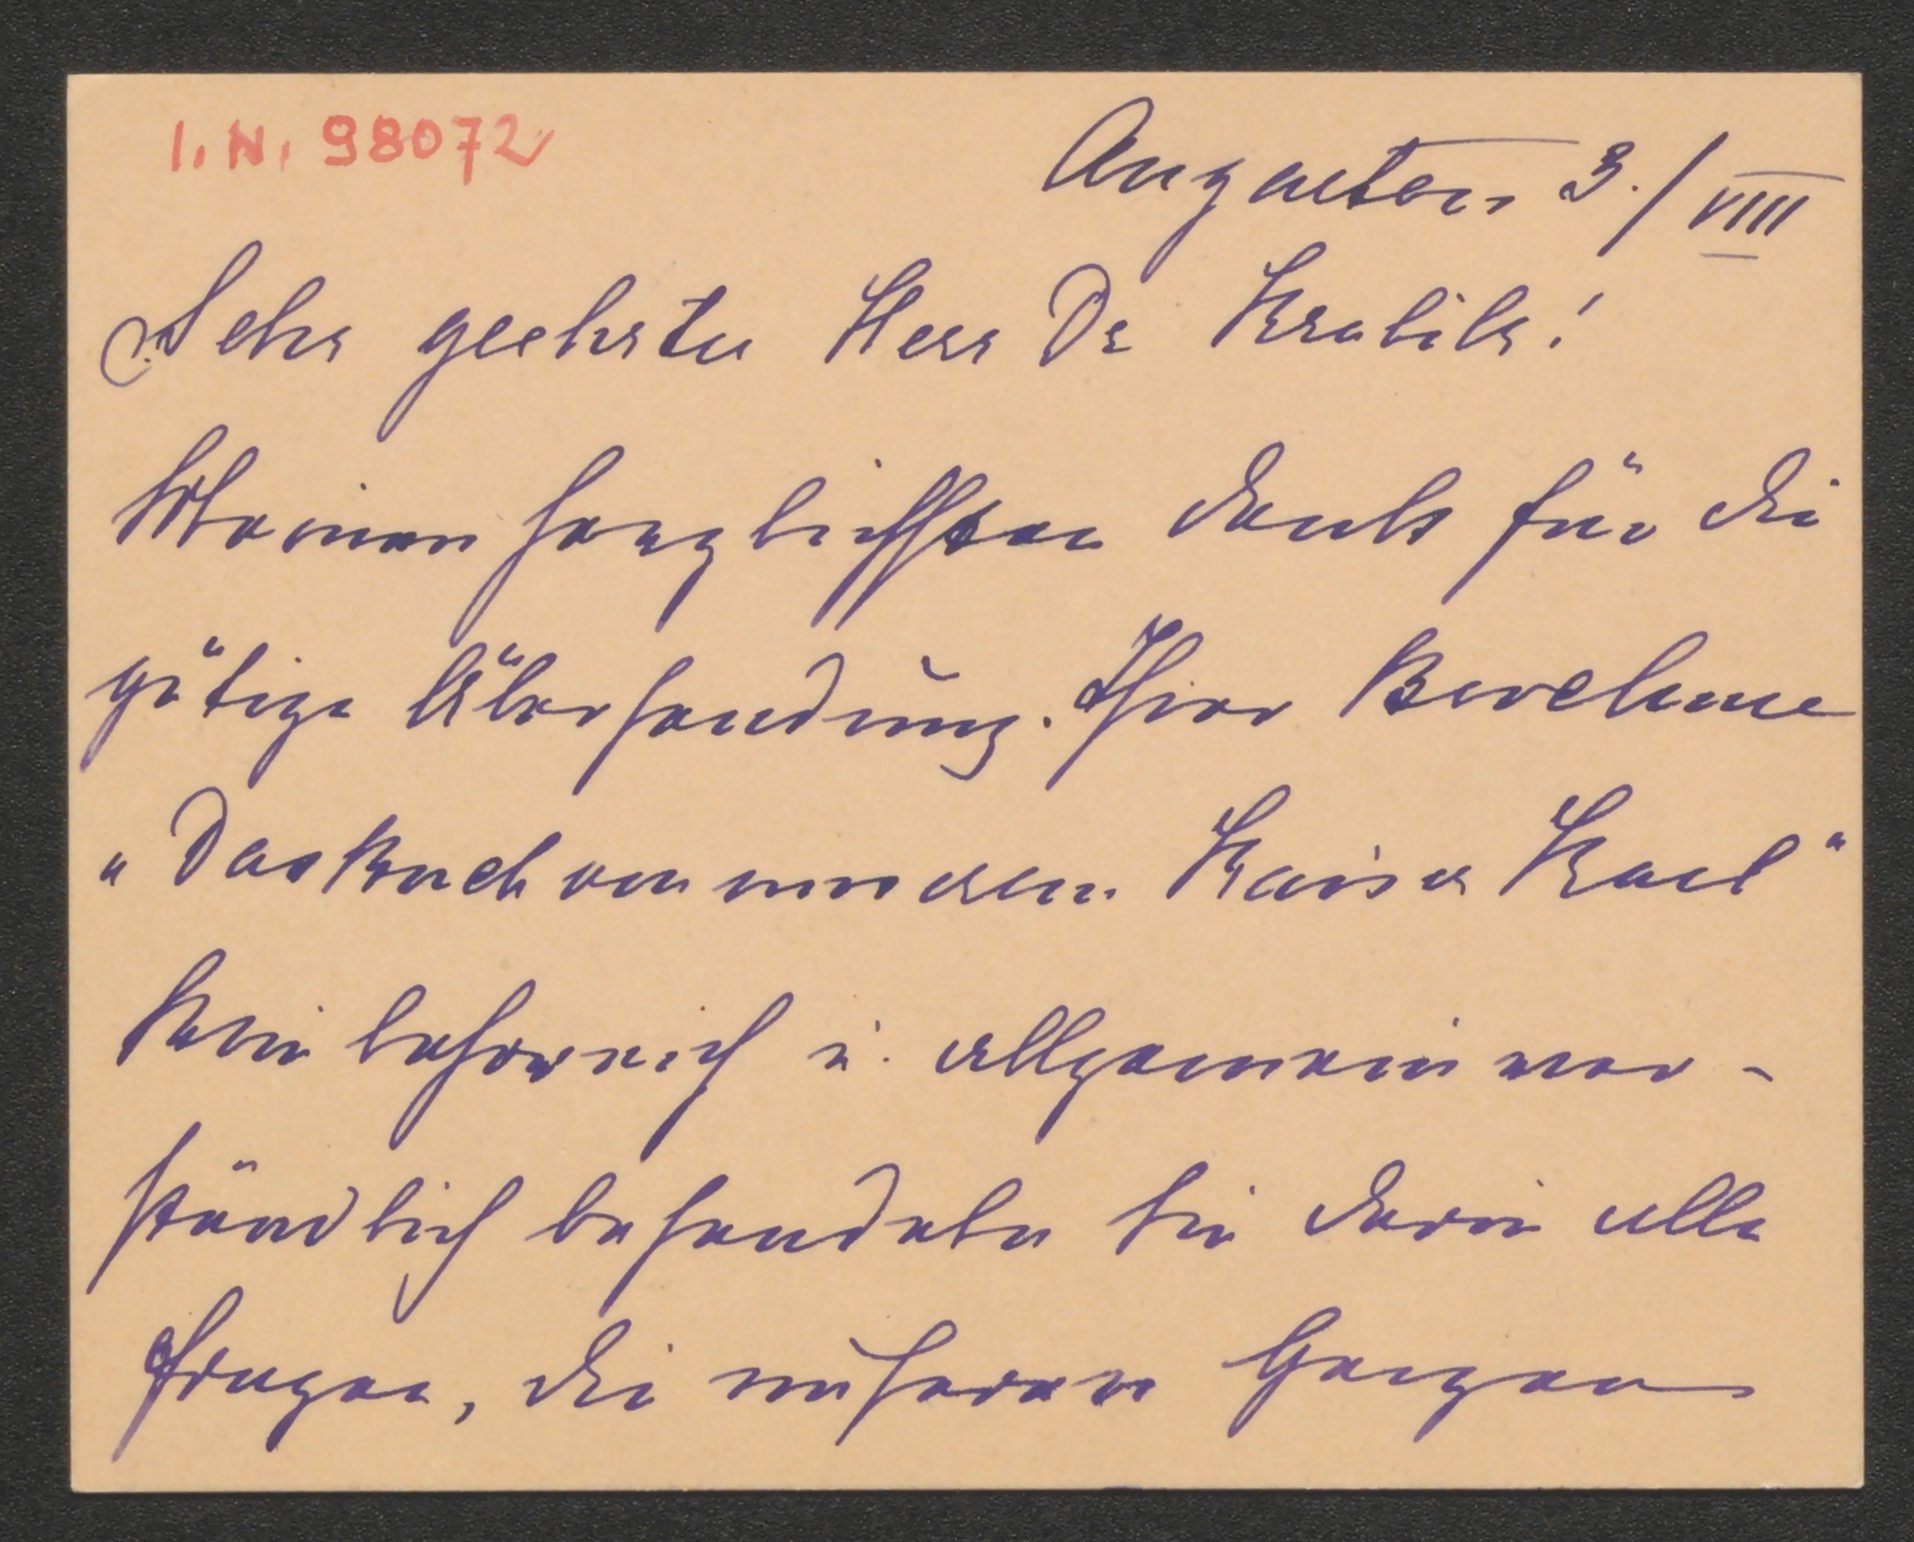 I. N. 98072
Augarten 3./VIII
Sehr geehrter Herr Dr Kralik!
Meinen herzlichsten Dank für die
gütige Übersendung. Ihrer
"Das Buch von unserm Kaiser Karl"
Wie lehrreich u. allgemein ver-
ständlich behandeln Sie darin alle
Fragen, die unseren Herzen